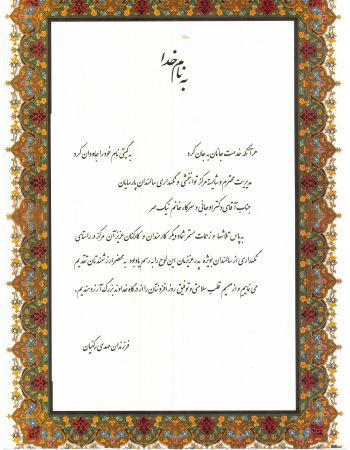 به نام خدا
هر آنکه خدمت جانان به جان کرد به گیتی نام خود را جاودان کرد
مدیریت محترم و شایسته مرکز توانبخشی و نگهداری سالمندان پارسایان
جناب آقای دکتر اوجانی و سرکار خانم نیک مهر
به پاس تلاشها و زحمات مستمر شما و دیگر کارمندان و کارکنان عزیز آن مرکز در راستای
نگهداری از سالمندان بویژه پدر عزیزمان این لوح را به رسم یادبود به محضر ارزشمندتان تقدیم
می نماییم و از صمیم قلب سلامتی و توفیق روز افزونتان را از درگاه خداوند بزرگ آرزومندیم.
فرزندان مهدی رکنیان